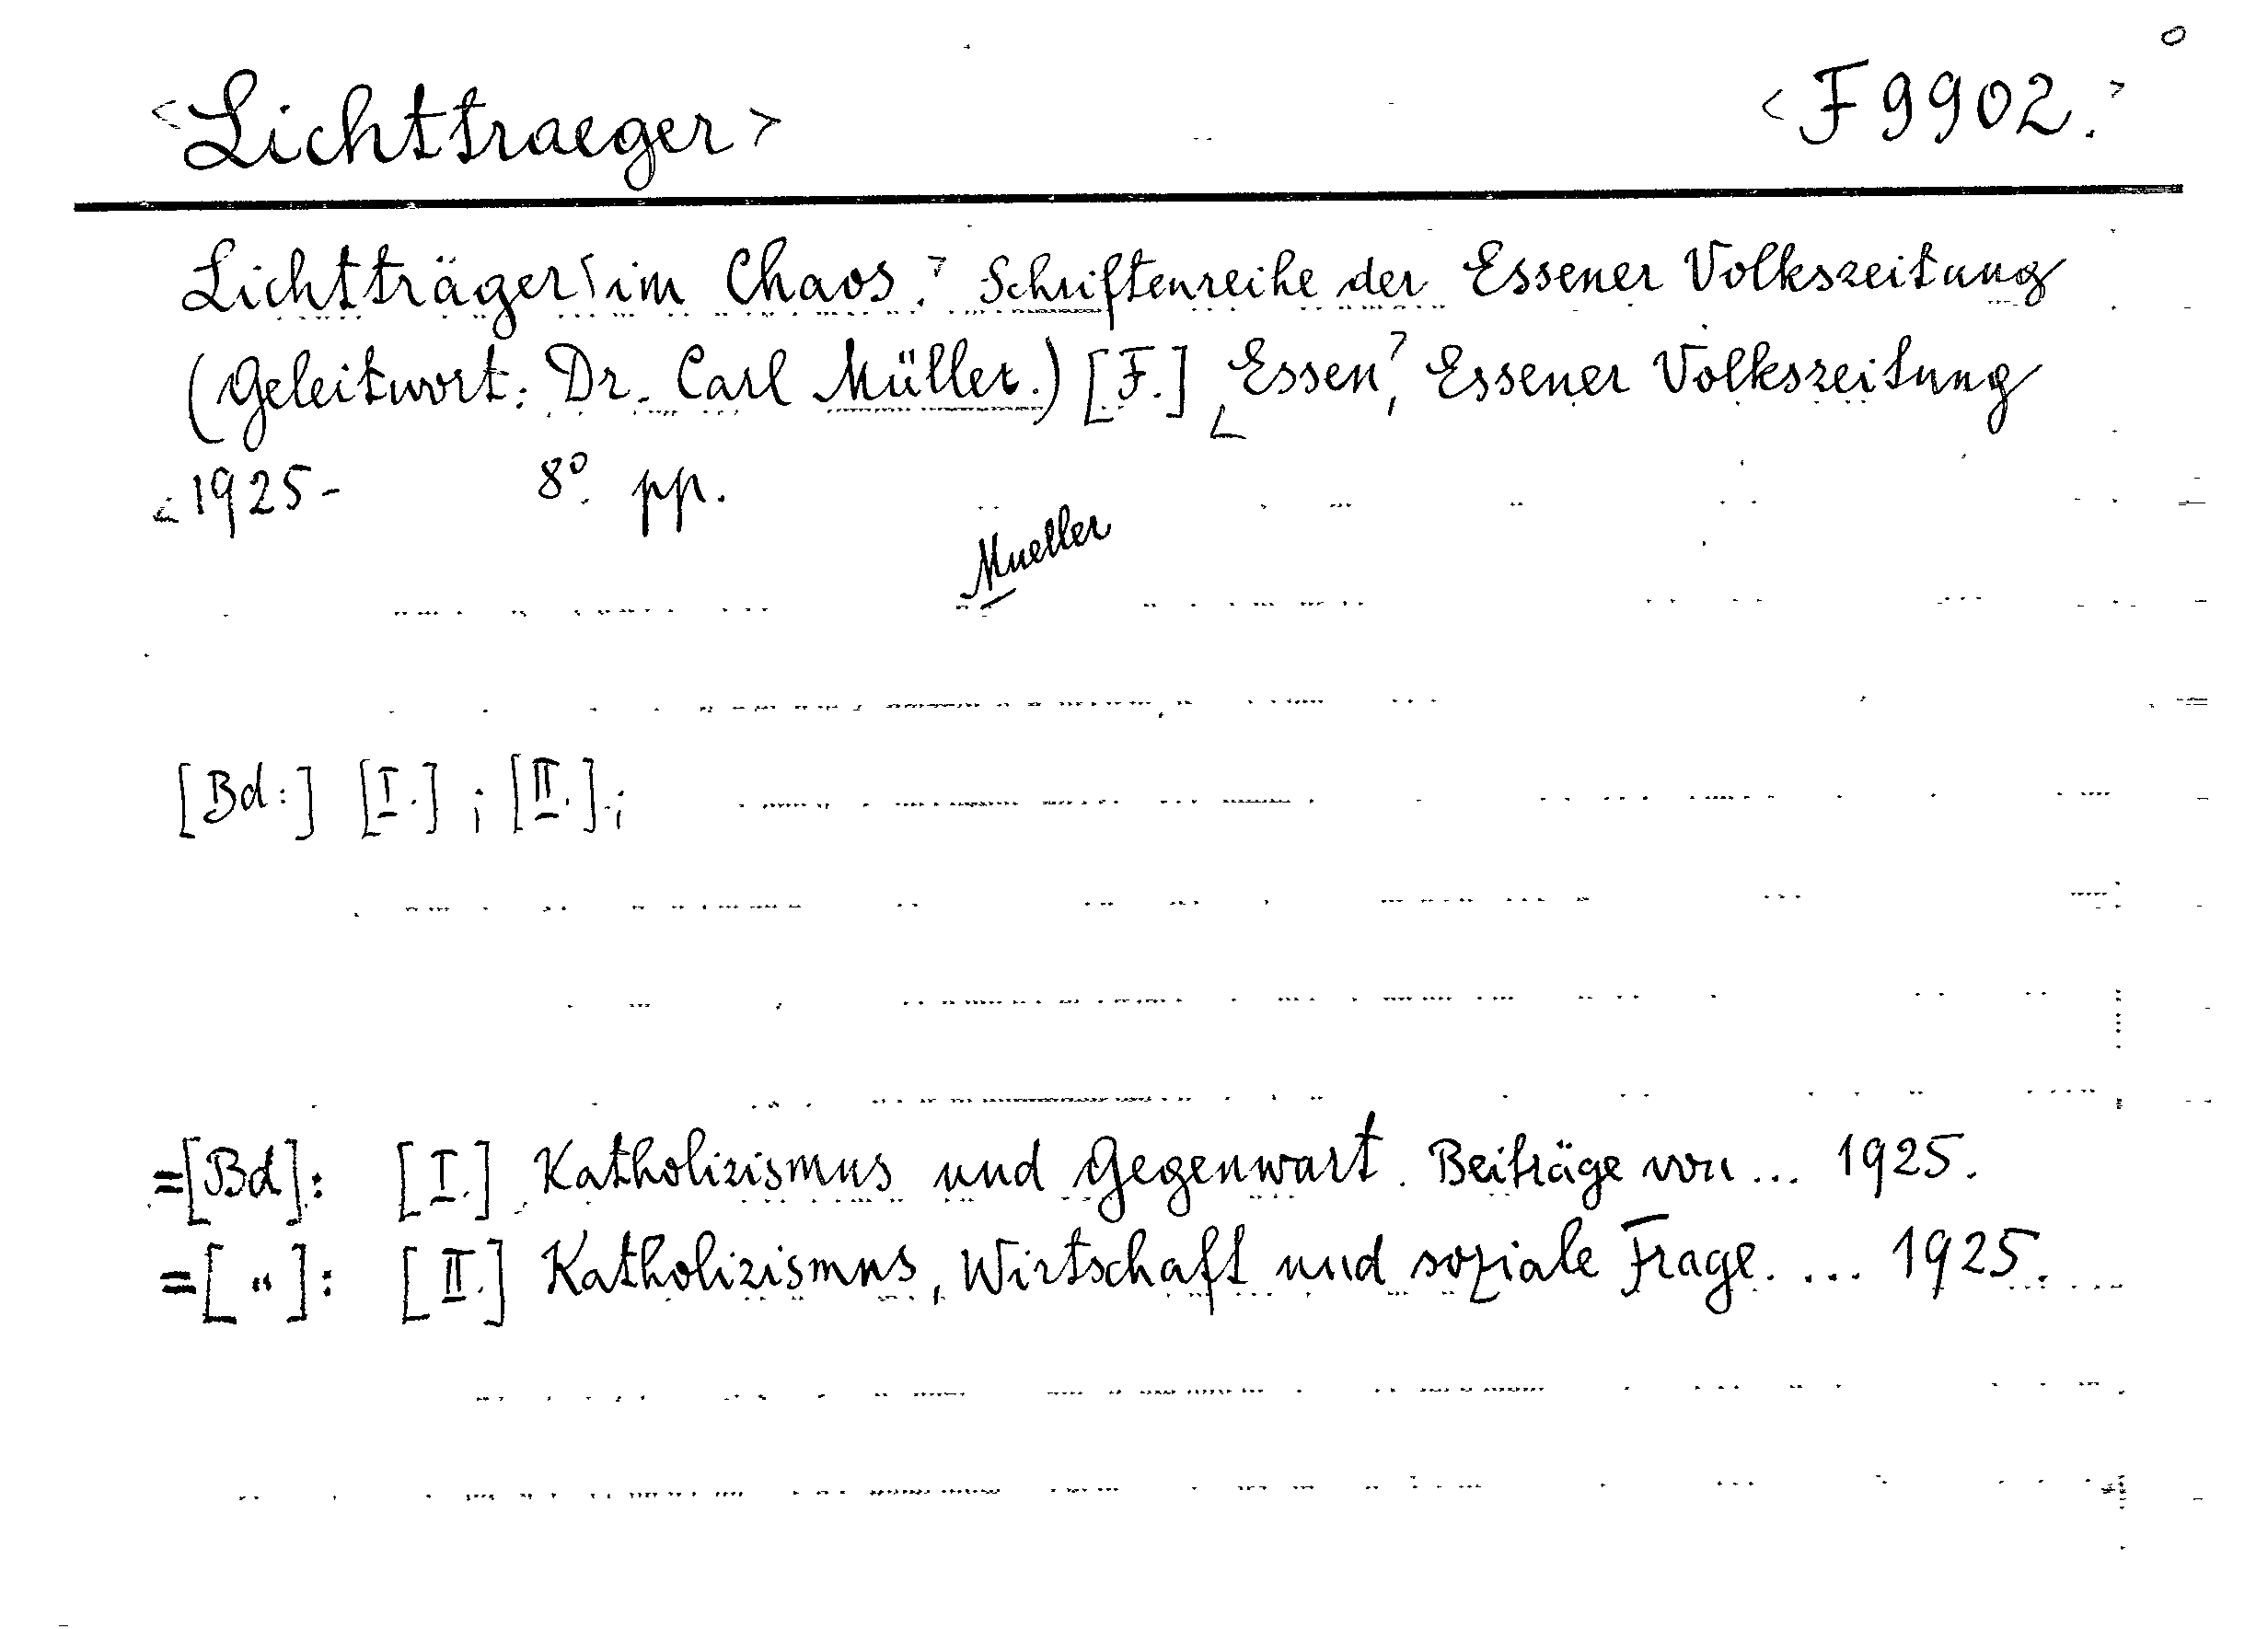 <Lichttraeger> <F9902.>
Lichtträger im Chaos. Schriftenreihe der Essener Volkszeitung
(Geleitwort: Dr. Carl Müller.) [F.] Essen, Essener Volkszeitung
1925- 8° pp.
Mueller
[Bd:] [I.] ; [II.];
=[Bd]: [I.] Katholizismus und Gegenwart. Beiträge von ... 1925.
=[„]: [II.] Katholizismus, Wirtschaft und soziale Frage. ... 1925.